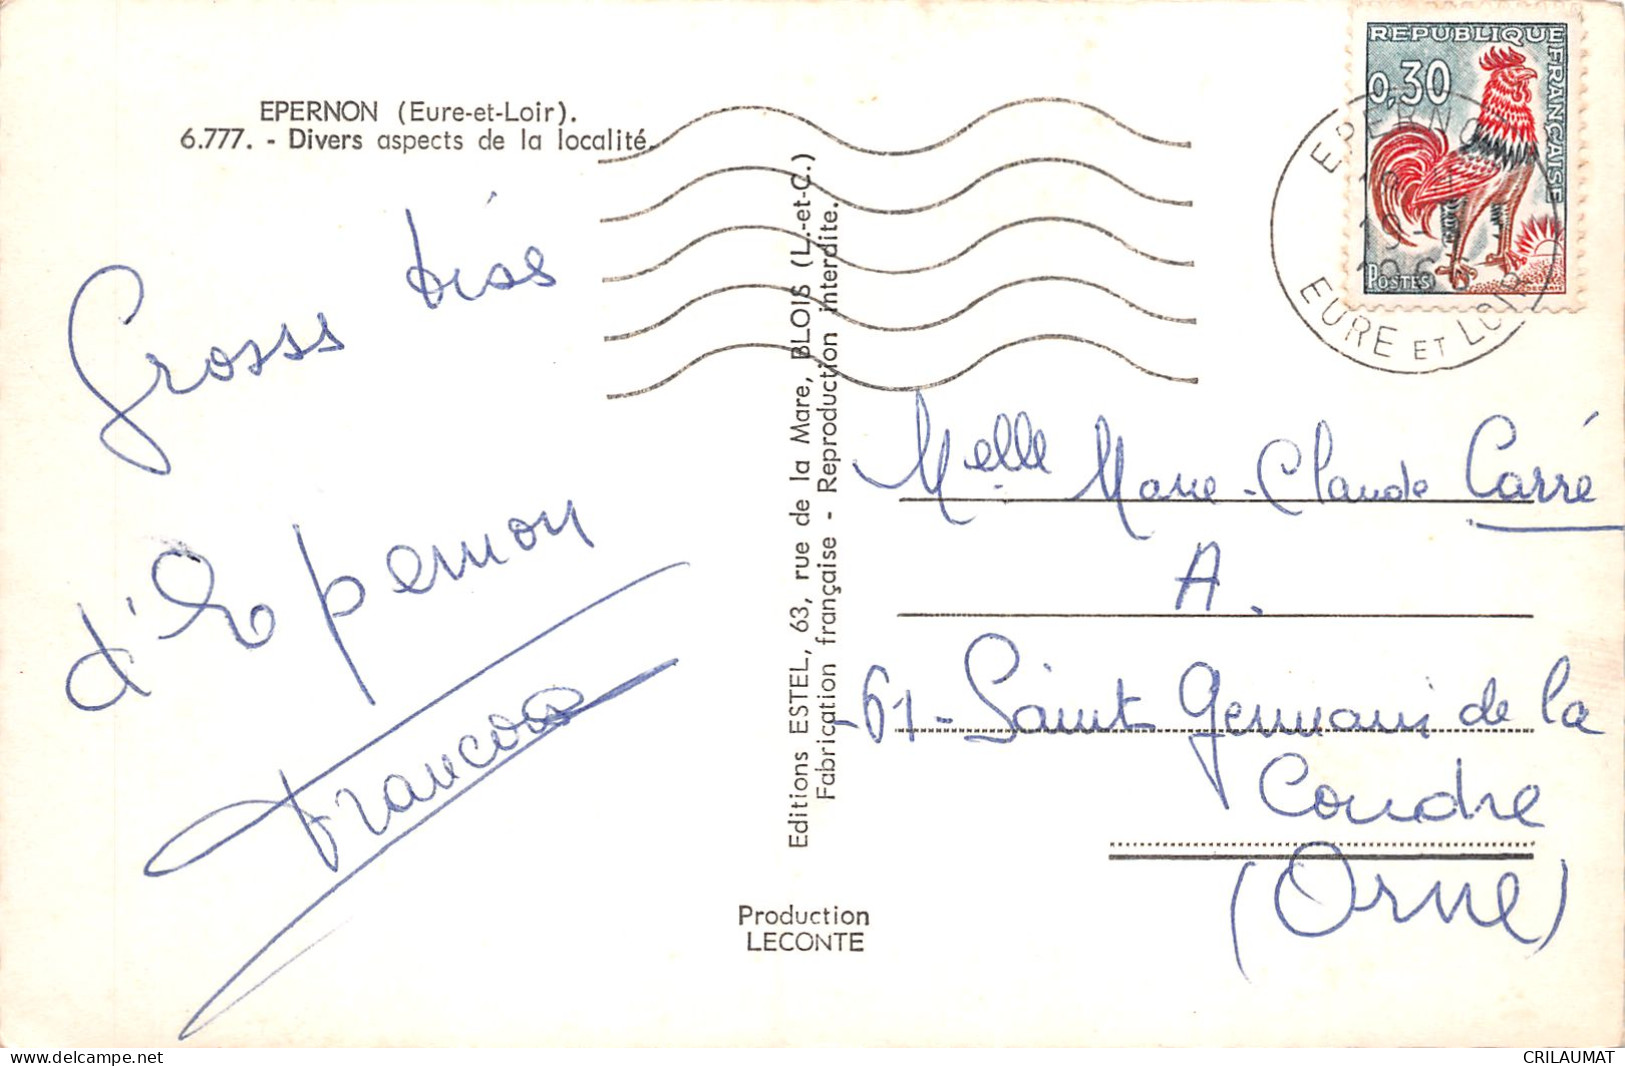 EPERNON (Eure-et-Loir).
6.777. - Divers aspects de la localité.
Grosss biss
d'Epernon
Francoa
Editions ESTEL, 63, rue de la Mare, BLOIS (L.-et-C.)
Fabrication française - Reproduction interdite.
Production
LECONTE
REPUBLIQUE
FRANÇAISE
0,30
POSTES
EPERNON
EURE ET LOIR
Melle Marie-Claude Carré
A.
-61- Saint Germain de la
Coudre
(Orne)
delcampe.net
CRILAUMAT